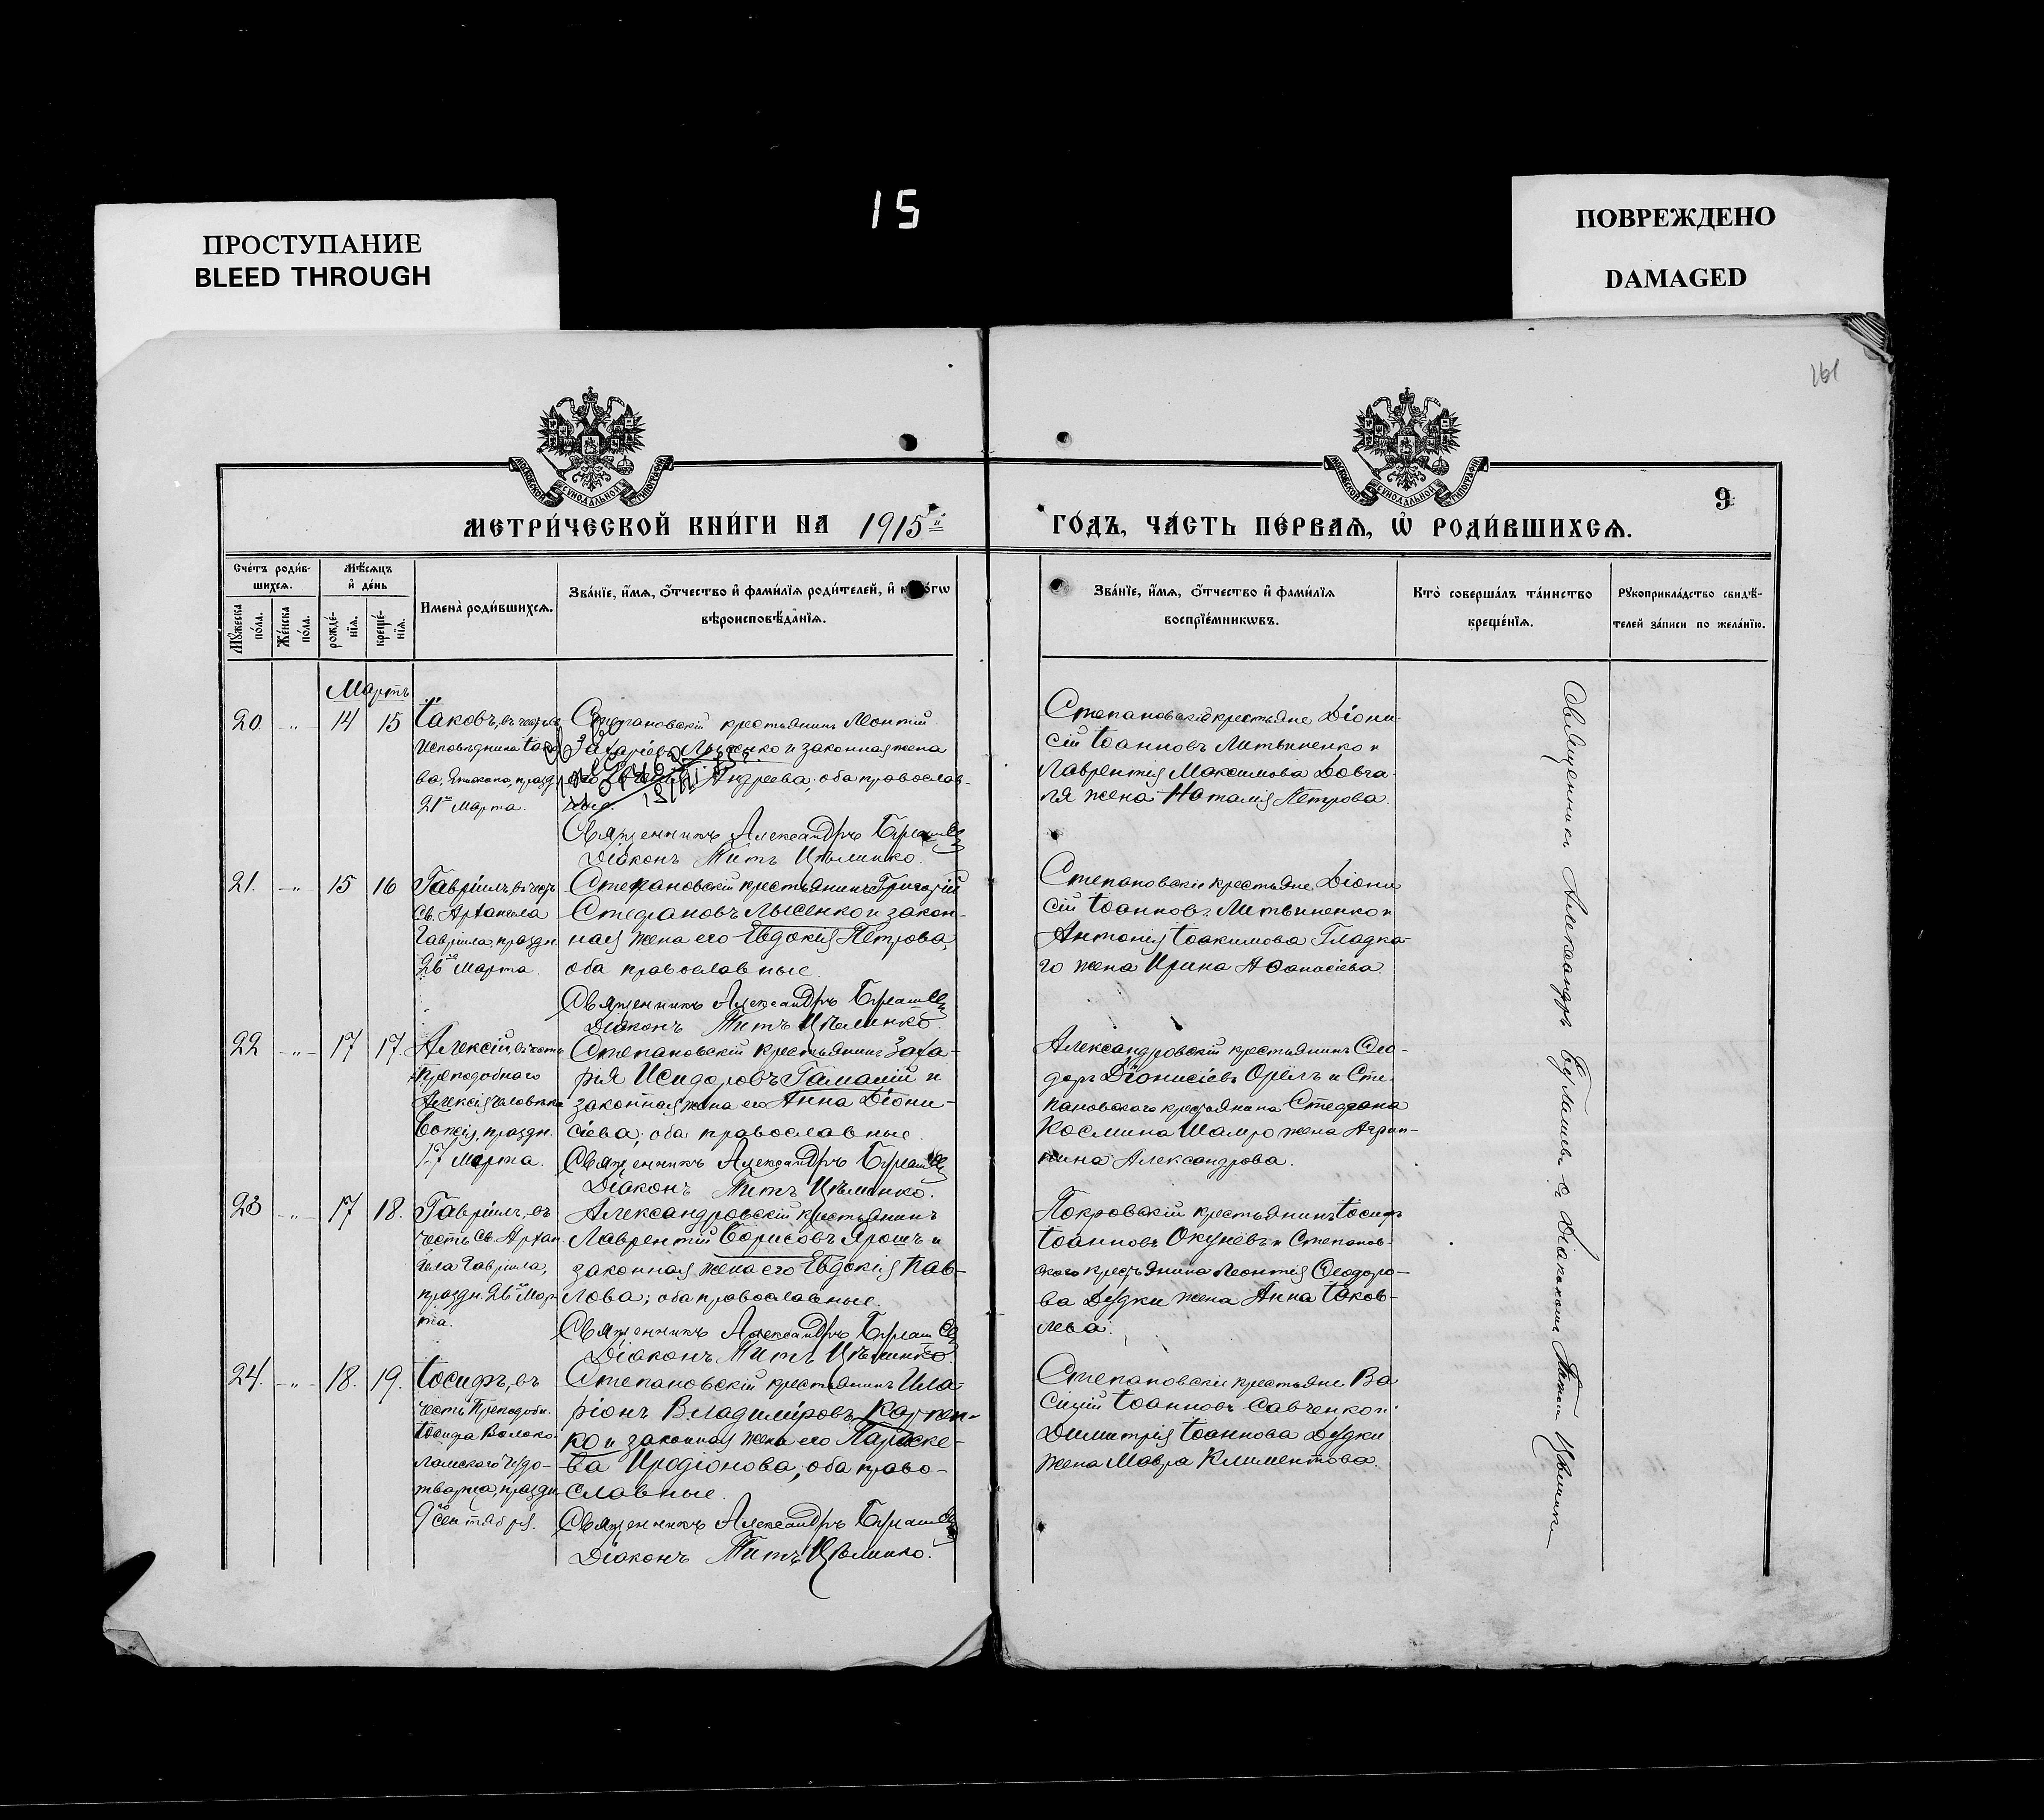 15
ПРОСТУПАНИЕ
BLEED THROUGH
ПОВРЕЖДЕНО
DAMAGED
161
МОСКОВСКОЙ СѴНОДАЛЬНОЙ ТИПОГРАФІИ
МОСКОВСКОЙ СѴНОДАЛЬНОЙ ТИПОГРАФІИ
9
МЕТРИ́ЧЕСКОЙ КНИ́ГИ НА 1915й
ГО́ДЪ, ЧА́СТЬ ПЕ́РВАѦ, Ѡ҆ РОДИ́ВШИХСѦ.
Сче́тъ роди́в-
шихсѧ.
Мѣ́сѧцъ
и҆ де́нь
Мꙋ́жеска по́ла.
Же́нска по́ла.
рожде́-нїѧ.
креще́-нїѧ.
Имена̀ роди́вшихсѧ.
Зва́нїе, и҆́мѧ, ѻ҆́тчество и҆ фами́лїѧ роди́телей, и҆
вѣроисповѣ́данїѧ.
Зва́нїе, и҆́мѧ, ѻ҆́тчество и҆ фами́лїѧ
воспрїе́мникѡвъ.
Кто̀ соверша́лъ та́инство
креще́нїѧ.
Рꙋкоприкла́дство свидѣ́-
телей за́писи по жела́нїю.
Мартъ
20. -"- 14 15
Іаковъ, въ честь
Исповѣдника Іако-
ва, Епископа, празд.
21го Марта.
Степановскій крестьянинъ Леонтій
Захаріевъ Лысенко и законная жена
его Андреева, оба православ-
ные.
Священникъ Александръ Бурлашевъ
Діаконъ Титъ Цѣлинко.
Степановскіе крестьяне Діони-
сій Іоанновъ Литвиненко и
Лаврентія Максимова Довга-
ля жена Наталія Петрова.
21. -"- 15 16
Гавріилъ, въ честь
Св. Архангела
Гавріила, праздн.
26го Марта.
Степановскій крестьянинъ Григорій
Стефановъ Лысенко и закон-
ная жена его Евдокія Петрова,
оба православные.
Священникъ Александръ Бурлашевъ
Діаконъ Титъ Цѣлинко.
Степановскіе крестьяне Діони-
сій Іоанновъ Литвиненко и
Антонія Іоакимова Гладка-
го жена Ирина Аѳанасіева.
22 -"- 17 17.
Алексій, въ честь
Преподобнаго
Алексія человѣка
Божія, праздн.
17 Марта.
Степановскій крестьянинъ Заха-
рія Исидоровъ Гамалій и
законная жена его Анна Діони-
сіева; оба православные.
Священникъ Александръ Бурлашевъ
Діаконъ Титъ Цѣлинко.
Александровскій крестьянинъ Ѳео-
доръ Діонисіевъ Орелъ и Сте-
пановскаго крестьянина Стефана
Космина Шамро жена Агрип-
пина Александрова.
23 -"- 17 18.
Гавріилъ, въ
честь Св. Архан-
гела Гавріила,
праздн. 26го Мар-
та.
Александровскій крестьянинъ
Лаврентій Борисовъ Ярошъ и
законная жена его Евдокія Пав-
лова; оба православные.
Священникъ Александръ Бурлашевъ
Діаконъ Титъ Цѣлинко.
Покровскій крестьянинъ Іосифъ
Іоанновъ Окуневъ и Степанов-
скаго крестьянина Леонтія Ѳеодоро-
ва Дудки жена Анна Іаков-
лева.
24. -"- 18. 19.
Іосифъ, въ
честь Преподобн.
Іосифа Волоко-
ламскаго Чудо-
творца, праздн.
9го Сентября.
Степановскій крестьянинъ Ила-
ріонъ Владиміровъ Карпен-
ко и законная жена его Параске-
ва Иродіонова; оба право-
славные.
Священникъ Александръ Бурлашевъ
Діаконъ Титъ Цѣлинко.
Степановскіе крестьяне Ва
силій Іоанновъ Савченко и
Димитрія Іоаннова Дудки
жена Мавра Климентова.
Священникъ Александръ Бурлашевъ съ Діакономъ Титомъ Цѣлинко